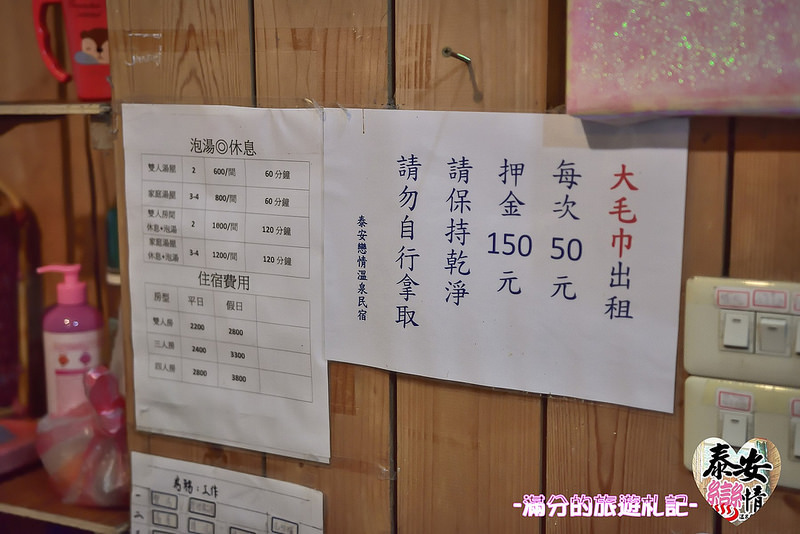 泡湯◎休息
雙人湯屋 2 600/間 60分鐘
家庭湯屋 3-4 800/間 60分鐘
雙人房間
休息+泡湯 2 1000/間 120分鐘
家庭湯屋
休息+泡湯 3-4 1200/間 120分鐘
住宿費用
房型 平日 假日
雙人房 2200 2800
三人房 2400 3300
四人房 2800 3800
大毛巾出租
每次50元
押金150元
請保持乾淨
請勿自行拿取
泰安戀情溫泉民宿
-滿分的旅遊札記-
泰安
戀情